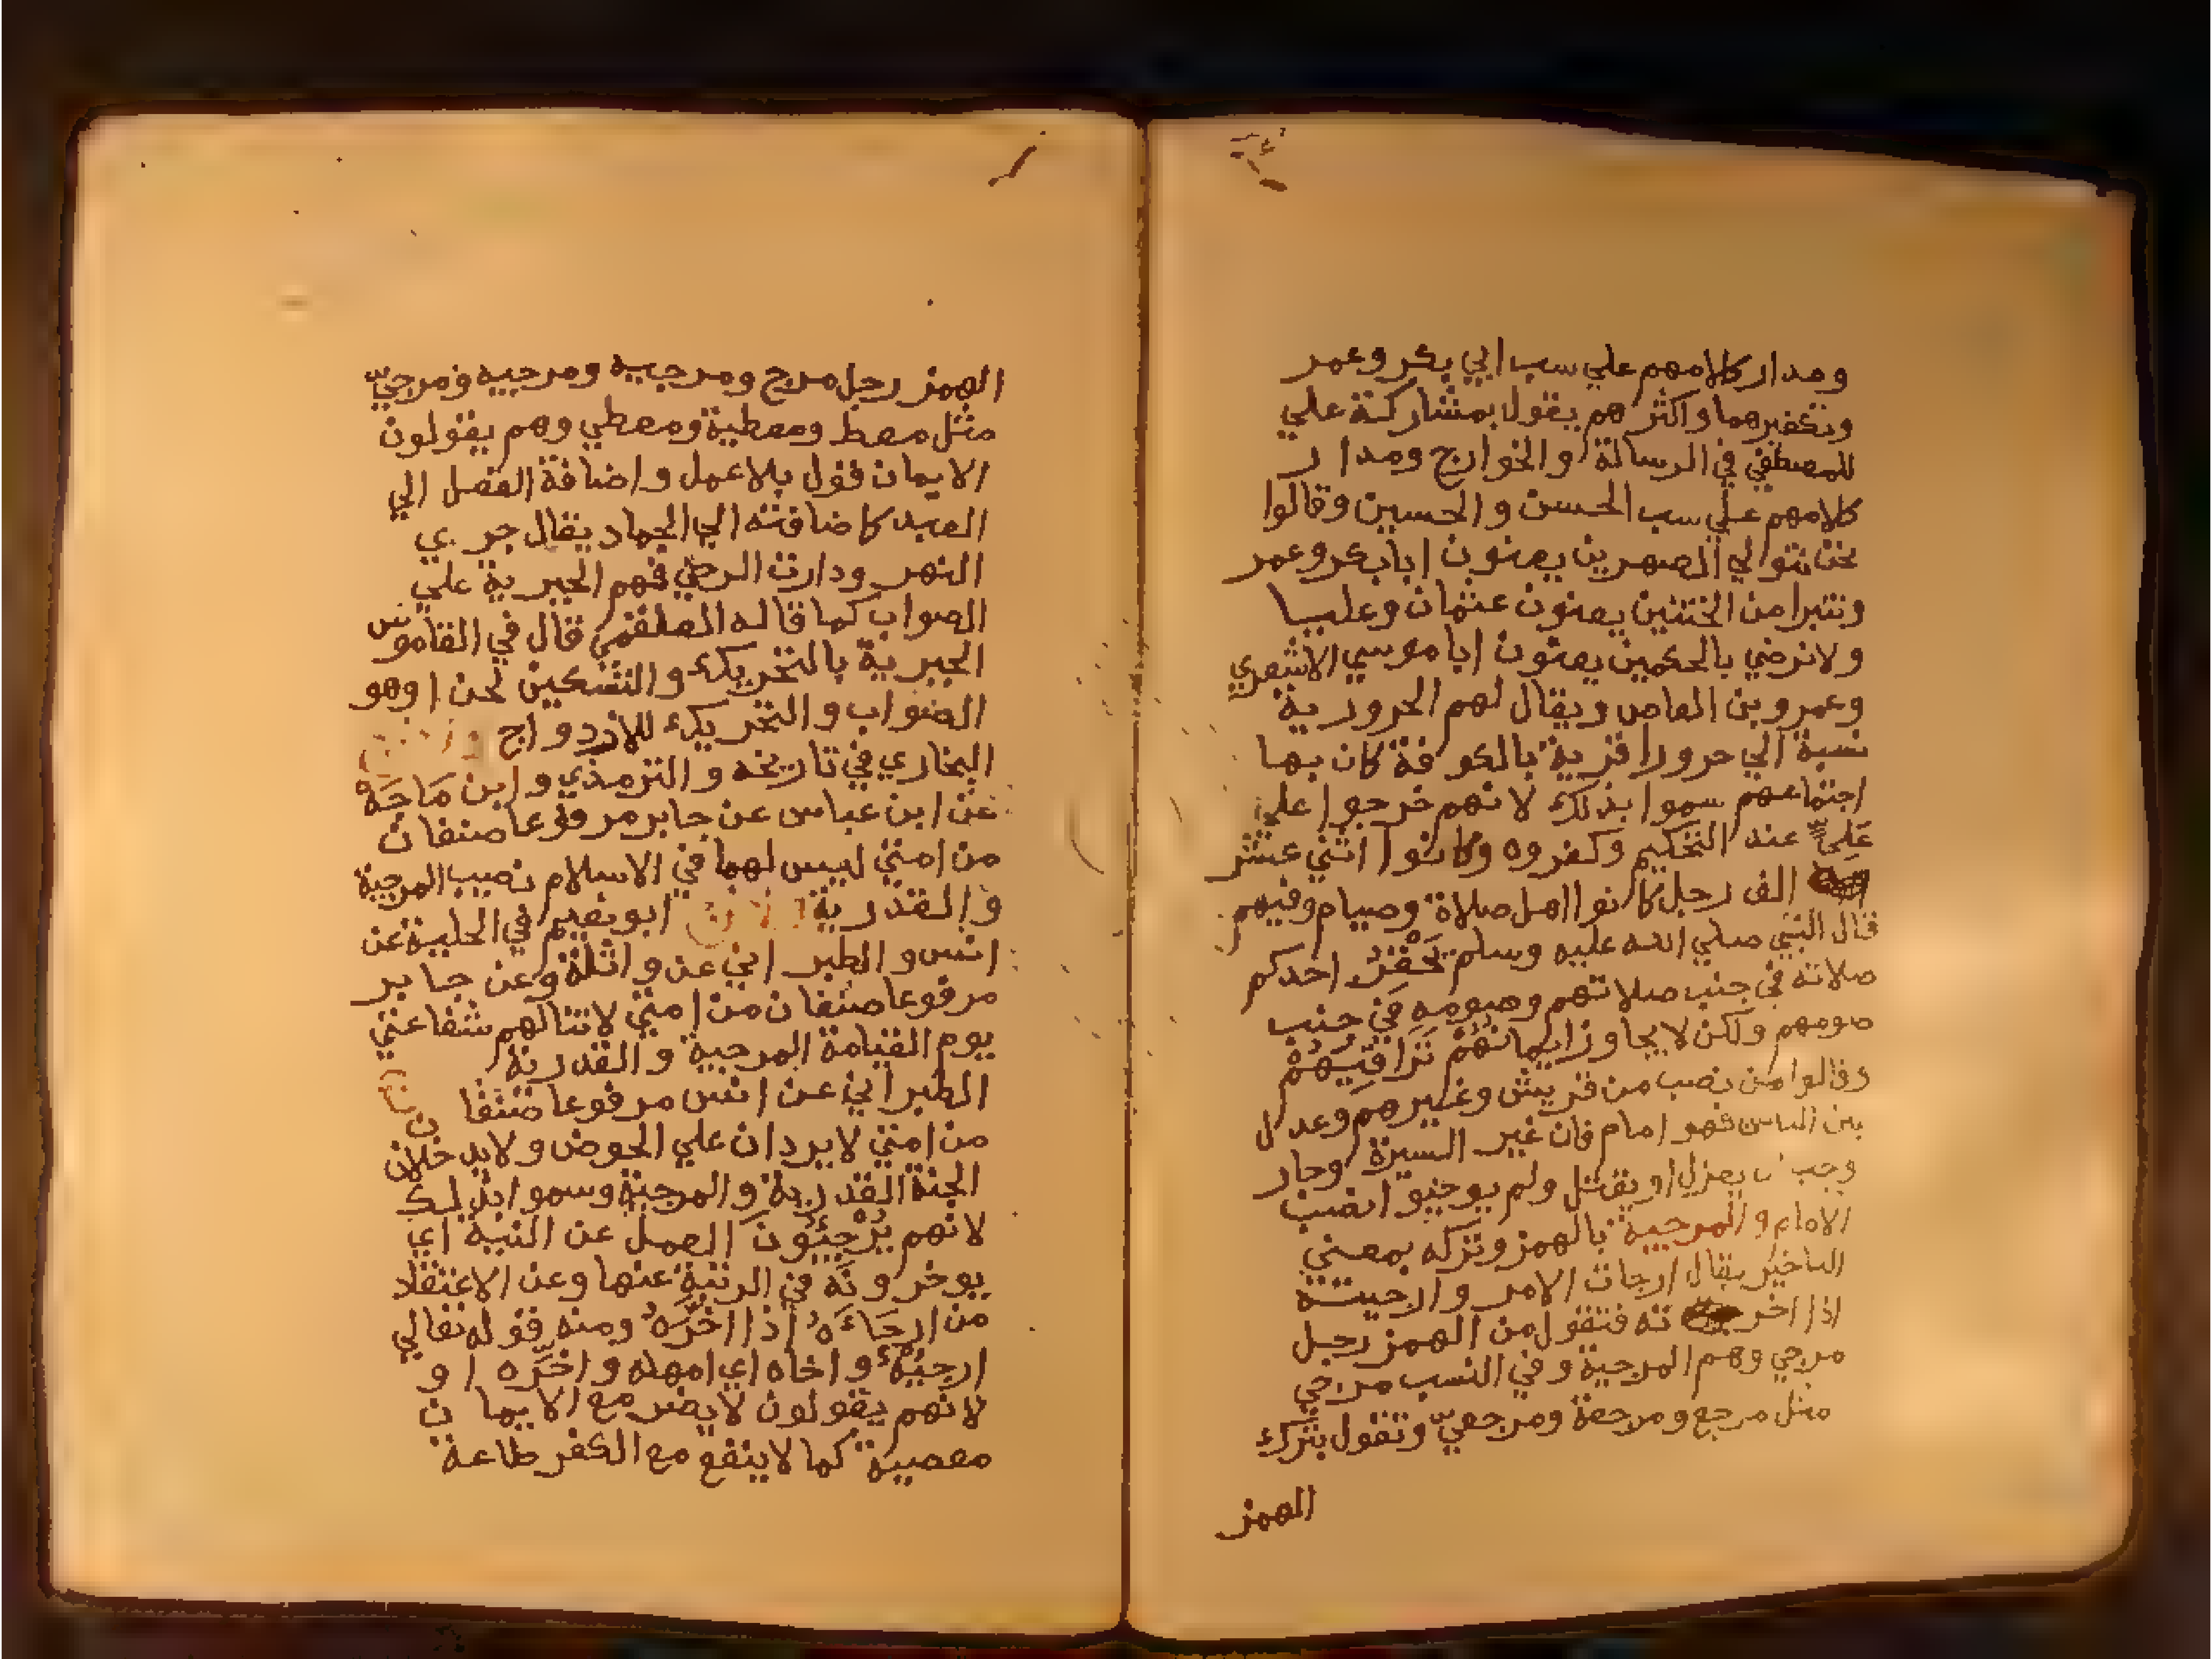 ومدار كلامهم علي سب ابي بكر وعمر
وتكفيرهما واكثرهم يقول بمشاركة علي
للمصطفي في الرسالة والخوارج ومدار
كلامهم علي سب الحسن والحسين وقالوا
نحن نتوالي الصهرين يعنون ابابكر وعمر
ونتبرا من الختنين يعنون عثمان وعليا
ولانرضي بالحكمين يعنون اباموسي الاشعري
وعمرو بن العاص ويقال لهم الحرورية
نسبة الي حرورا قرية بالكوفة كان بها
اجتماعهم سموا بذلك لانهم خرجوا علي
عَلِيٍّ عند التحكيم وكفروه وكانوا اثني عشر
الف رجل كانوا اهل صلاة وصيام وفيهم
قال النبي صلي الله عليه وسلم تحْقِرُ احدكم
صلاته في جنب صلاتهم وصومه في جنب
صومهم ولكن لايجاوز ايمانهُمْ تَرَاقِيَهُمْ
وقالوا من نصب من قريش وغيرهم وعدل
بين الناس فهو امام فان غير السيرة وجار
وجب ان يعزل او يقتل ولم يوجبوا نصب
الامام والمرجية بالهمز وتركه بمعني
التاخير يقال ارجات الامر وارجيته
اذا اخرته فتقول من الهمز رجل
مرجي وهم المرجية وفي النسب مرجي
مثل مرجع ومرجعة ومرجعيّ وتقول بترك
الهمز
الهمز رجل مرج ومرجيه ومرجيه ومرجيّ
مثل معط ومعطية ومعطي وهم يقولون
الايمان قول بلاعمل واضافة الفعل الي
العبد كاضافته الي الجماد يقال جري
النهر ودارت الرحي فهم الجبرية علي
الصواب كما قاله العلقمي قال في القاموس
الجبرية بالتحريك والتسكين لحن اوهو
الصواب والتحريك للازدواج
البخاري في تاريخه والترمذي وابن مَاجَهْ
عن ابن عباس عن جابر مرفوعا صنفان
من امتي ليس لهما في الاسلام نصيب المرجية
والقدرية ابونعيم في الحلية عن
انس والطبراني عن واثلة وعن جابر
مرفوعا صنفان من امتي لاتنالهم شفاعتي
يوم القيامة المرجية والقدرية
الطبراني عن انس مرفوعا صنفان
من امتي لايردان علي الحوض ولايدخلان
الجنة القدرية والمرجية وسموا بذلك
لانهم يُرْجِئُونَ العمل عن النية اي
يوخرونَه في الرتبة عنها وعن الاعتقاد
من ارجَاءَهُ اذا اخَّرَهُ ومنه قوله تعالي
ارجِئْهُ واخاه اي امهله واخّره او
لانهم يقولون لايضر مع الايمان
معصية كما لاينفع مع الكفر طاعة